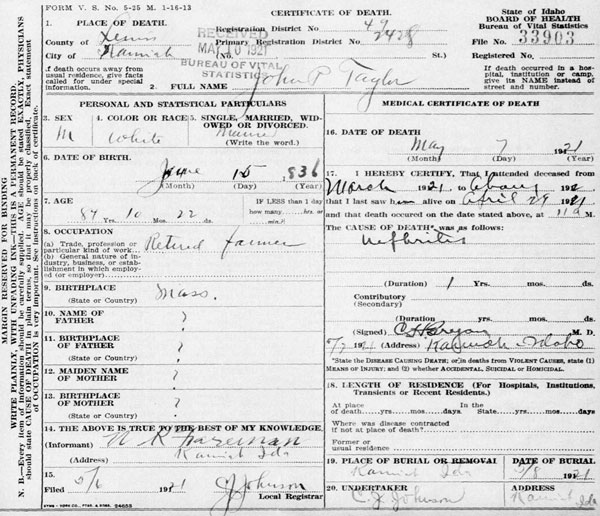 FORM V. S. No. 5-25 M. 1-16-13
CERTIFICATE OF DEATH.
State of Idaho
BOARD OF HEALTH
Bureau of Vital Statistics
1. PLACE OF DEATH.
County of Lewis
City of Kamiah
RECEIVED
MAY 10 1921
BUREAU OF VITAL
STATISTICS
Registration District No. 47
Primary Registration District No. 2428
(No. St.)
File No. 33903
Registered No.
If death occurs away from
usual residence, give facts
called for under special
information.
If death occurred in a hos-
pital, institution or camp,
give its NAME instead of
street and number.
2. FULL NAME John P Taylor
MARGIN RESERVED FOR BINDING
WRITE PLAINLY, WITH UNFADING INK—THIS IS A PERMANENT RECORD.
N. B.—Every item of information should be carefully supplied. AGE should be stated EXACTLY. PHYSICIANS
should state CAUSE OF DEATH in plain terms, so that it may be properly classified. Exact statement
of OCCUPATION is very important. See instructions on back of certificate.
PERSONAL AND STATISTICAL PARTICULARS
3. SEX
M
4. COLOR OR RACE
White
5. SINGLE, MARRIED, WID-
OWED OR DIVORCED.
(Write the word.)
6. DATE OF BIRTH
June 15 1836
(Month) (Day) (Year)
7. AGE
84 Yrs. 10 Mos. 22 ds.
IF LESS than 1 day
how many hrs. or
min.?
8. OCCUPATION
(a) Trade, profession or
particular kind of work Retired Farmer
(b) General nature of in-
dustry, business, or estab-
lishment in which employ-
ed (or employer)
9. BIRTHPLACE
(State or Country)
Mass.
10. NAME OF
FATHER ?
11. BIRTHPLACE
OF FATHER
(State or Country) ?
12. MAIDEN NAME
OF MOTHER ?
13. BIRTHPLACE
OF MOTHER
(State or Country) ?
14. THE ABOVE IS TRUE TO THE BEST OF MY KNOWLEDGE.
(Informant)
(Address) Kamiah Ida
15.
Filed 5/6 1921 C J Johnson
Local Registrar
SYMS-YORK CO., PTRS. & BDRS. 24655
MEDICAL CERTIFICATE OF DEATH
16. DATE OF DEATH
May 7 1921
(Month) (Day) (Year)
17. I HEREBY CERTIFY, That I attended deceased from
March 1921 to 192
that I last saw him alive on April 29 1921
and that death occurred on the date stated above, at 11 a M.
The CAUSE OF DEATH* was as follows:
nephritis
(Duration) 1 Yrs. mos. ds.
Contributory
(Secondary)
(Duration) Yrs. mos. ds.
(Signed) C H Bryan M. D.
5/7 1921 (Address) Kamiah Idaho
*State the DISEASE CAUSING DEATH; or in deaths from VIOLENT CAUSES, state (1)
MEANS OF INJURY; and (2) whether ACCIDENTAL, SUICIDAL or HOMICIDAL.
18. LENGTH OF RESIDENCE (For Hospitals, Institutions,
Transients or Recent Residents.)
At place
of death yrs. mos. days
In the
State yrs. mos. days
Where was disease contracted
if not at place of death?
Former or
usual residence
19. PLACE OF BURIAL OR REMOVAL
Kamiah Ida
DATE OF BURIAL
5/8 1921
20. UNDERTAKER
C. J. Johnson
ADDRESS
Kamiah Ida